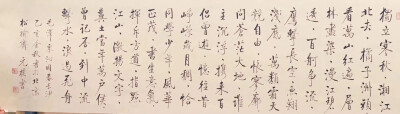 獨立寒秋湘江
北去橘子洲頭
看萬山紅遍層
林盡染漫江碧
透百舸爭流
鷹擊長空魚翔
淺底萬類霜天
競自由悵寥廓
問蒼茫大地誰
主沉浮攜來百
侶曾遊憶往昔
崢嶸歲月稠恰
同學少年風華
正茂書生意氣
揮斥方遒指點
江山激揚文字
糞土當年萬戶侯
曾記否到中流
擊水浪遏飛舟
毛澤東沁園春長沙